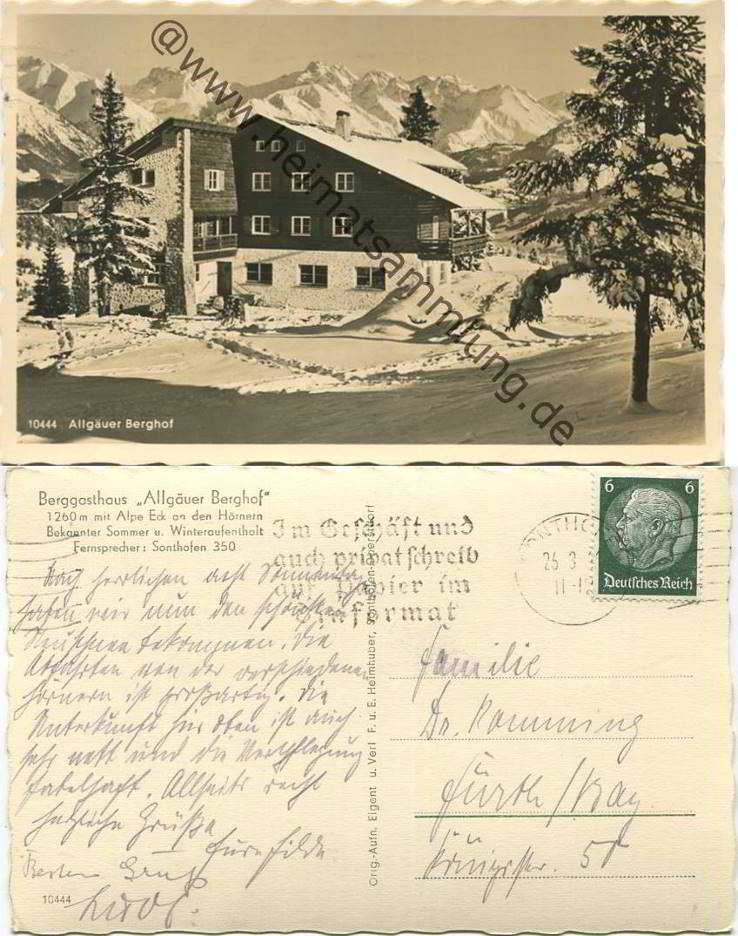 @www.heimatsammlung.de
10444 Allgäuer Berghof
Berggasthaus „Allgäuer Berghof"
1260 m mit Alpe Eck an den Hörnern
Bekannter Sommer u. Winteraufenthalt
Fernsprecher: Sonthofen 350
Im Geschäft und
auch privat schreib
auf Papier im
Dinformat
SONTHO
26 3
11-12
6 6
Deutsches Reich
Nach herrlichen acht Sonnentagen
haben wir nun den schönsten
Neuschnee bekommen. Die
Abfahrten von den verschiedenen
Hörnern ist großartig. Die
Unterkunft hier oben ist auch
sehr nett und die Verpflegung
fabelhaft. Allseits recht
herzliche Grüße
Besten Gruß
10444
Orig.-Aufn. Eigent u. Verl F. u. E. Heimhuber, Sonthofen-Oberstdorf
Familie
Dr. Romming
Fürth / Bay.
Königstr. 50